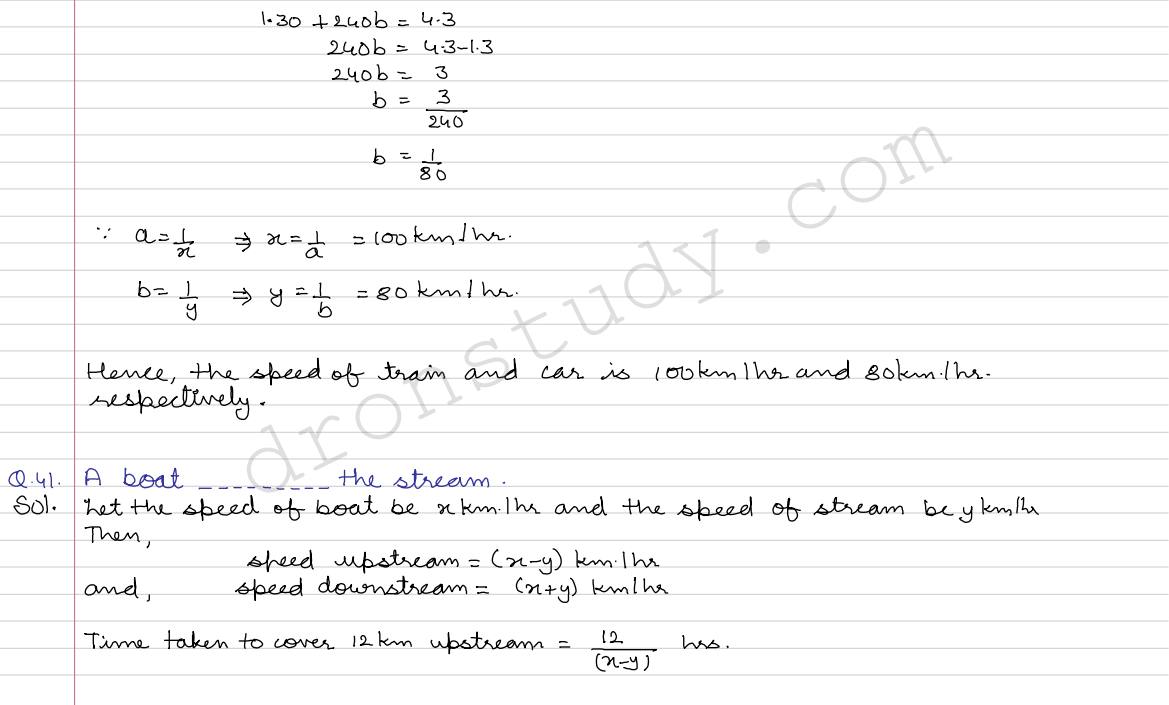 1.30 + 240b = 4.3
240b = 4.3-1.3
240b = 3
b = 3/240
b = 1/80
∵ a = 1/x ⇒ x = 1/a = 100 km/hr.
b = 1/y ⇒ y = 1/b = 80 km/hr.
Hence, the speed of train and car is 100km/hr and 80km./hr.
respectively.
Q.41. A boat _ _ _ _ _ _ _ _ _ the stream.
Sol. Let the speed of boat be x km./hr and the speed of stream be y km/hr
Then,
speed upstream = (x-y) km./hr
and, speed downstream = (x+y) km/hr
Time taken to cover 12km upstream = 12/(x-y) hrs.
dronstudy.com